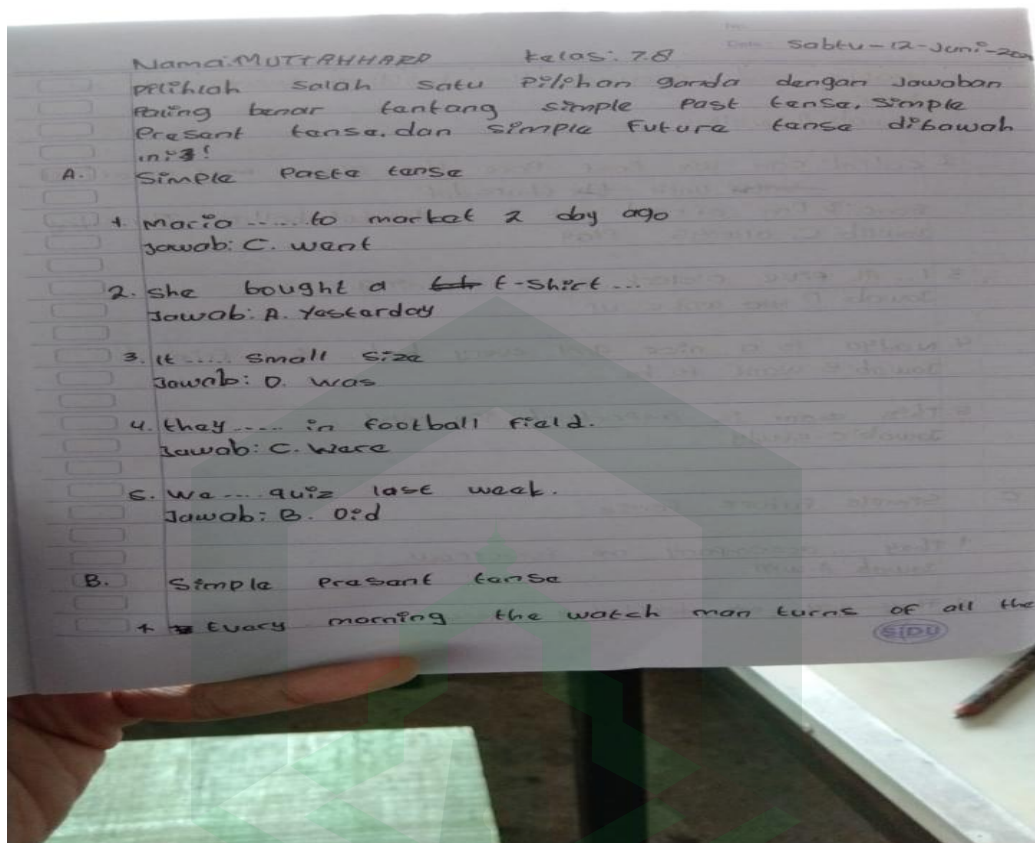 Sabtu-12-Juni-20
Nama: MUTTAHHARD Kelas: 7.8
Pilihlah Salah Satu Pilihan ganda dengan Jawaban
Paling benar tentang simple Past tense, simple
Present tense, dan simple Future tense dibawah
ini!
A. Simple Paste tense
1. Maria ...... to market 2 day ago
Jawab: C. went
2. She bought a t-shirt ...
Jawab: A. Yesterday
3. It ..... Small size
Jawab: D. was
4. they ..... in football field.
Jawab: C. Were
5. We .... quiz last week.
Jawab: B. Did
B. Simple Present tense
1 Every morning the watch man turns of all the
SIDU